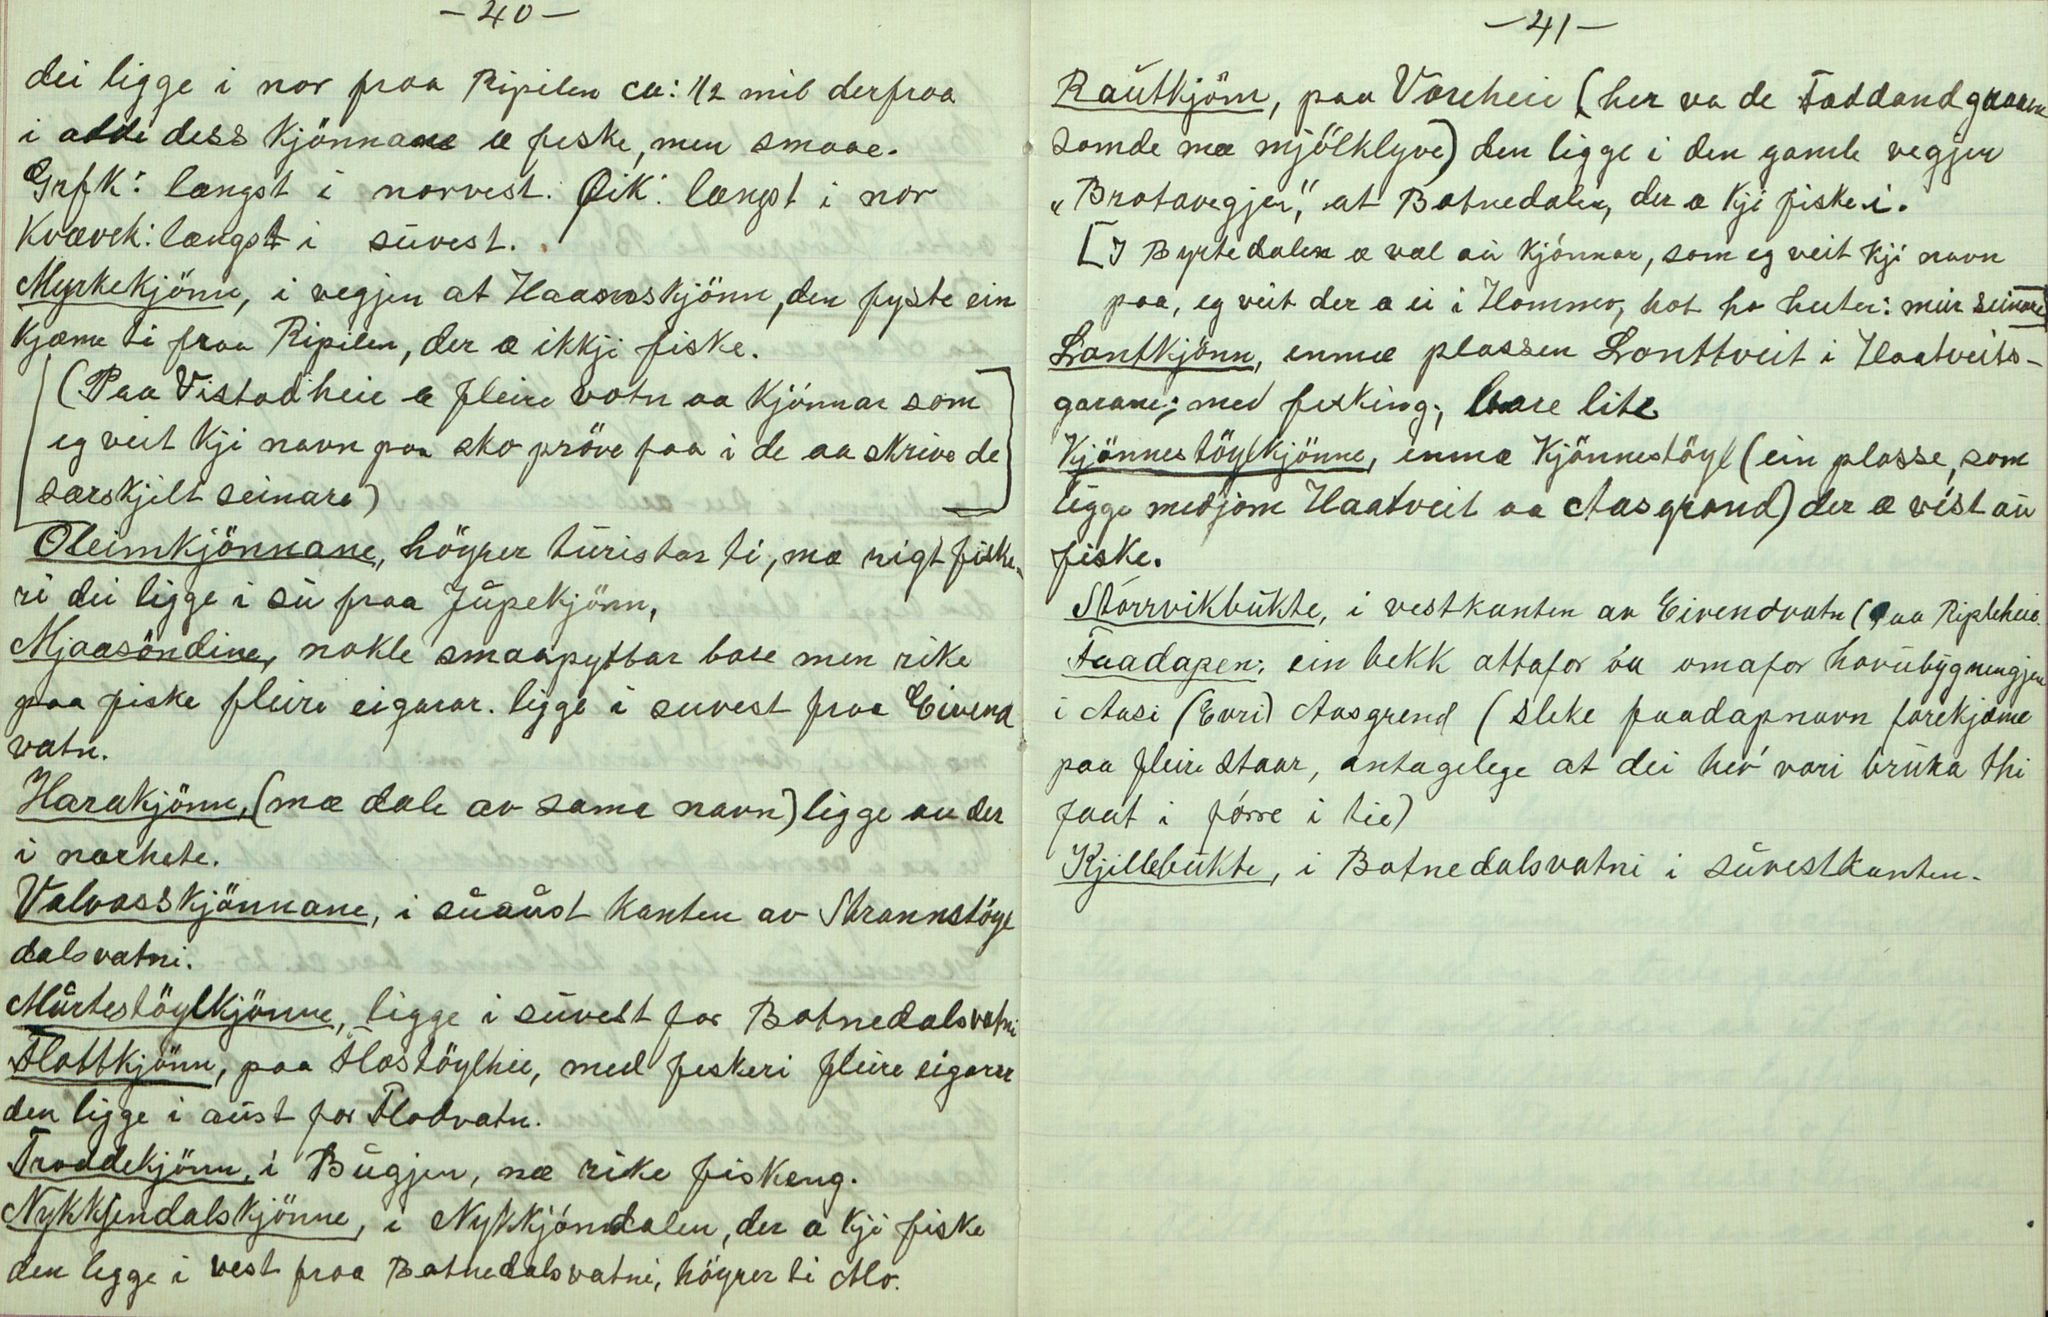 — 40 —
dei ligge i nor fraa Ripilen ca: 1/2 mil derfraa
i adde dess Kjönnane æ feske, men smaae.
Grfk: længst i norvest. Öik: længst i nor
Kvævek: længst i süvest.
Myrkekjönn, i vegjen at Haasaskjönn, den fyste ein
kjæme ti fraa Ripilen, der æ ikkji fiske.
(Paa Vistadheie æ fleire votn aa Kjónnar som
eg veit Kji navn paa sko pröve faa i de aa skrive de
særskjilt seinare)
Oleimkjönnane, höyrer türistar ti, mæ rigt fiske-
ri dei ligge i sü fraa Jüpekjönn,
Mjaasöndine, nokle smaapyttar bare men rike
paa fiske fleire eigarar. ligge i suvest fraa Eivend
vatn.
Harakjönn, (mæ dale av same navn) ligge au der
i nærhete.
Valvasskjönnane, i süaüst kanten av Strannstöyl
dalsvatni.
Mürtestöylkjönne, ligge i süvest for Botnedalsvatni
Flottkjönn, paa Flostöylheie, med feskeri fleire eigarar
den ligge i aüst for Flodvatn.
Troddekjönn, i Bügjen, mæ rike fiskeng.
Nykkjendalskjönne, i Nykkjóndalen, der æ Kji fiske
den legge i vest fraa Botnedalsvatni, höyrer ti Mo.
— 41 —
Raütkjöm, paa Voreheie (her va de Foddand graaen
somde mæ mjólklyve) den ligge i den gamle vegjen
„Brotavegjen", at Botnedalen, der æ Kji fiske i.
[I Byrtedalen æ væl aü Kjónnar, som eg veit Kji navn
paa, eg veit der æ ei i Hommo, hot ho heeter: meir seinare]
Lontkjönn, enmæ plassen Lonttveit i Haatveits-
garane; med fisking; bare lite
Kjönnestöylkjönne, enmæ Kjönnestöyl (ein plasse, som
ligge medjom Haatveit aa Aasgrend) der æ vist aü
fiske.
Storrvikbükte, i vestkanten av Eivendvatn (paa Ripleheie.
Faadapen; ein bekk attafor óu omafor hovübygnengjen
i Aasi (Evri) Aasgrend (sleke faadapnavn forekjæme
paa fleire staar, antagelege at dei hev vori brüka thi
faat i fórre i tie)
Kjillebükte, i Botnedalsvatni i süvestkanten.